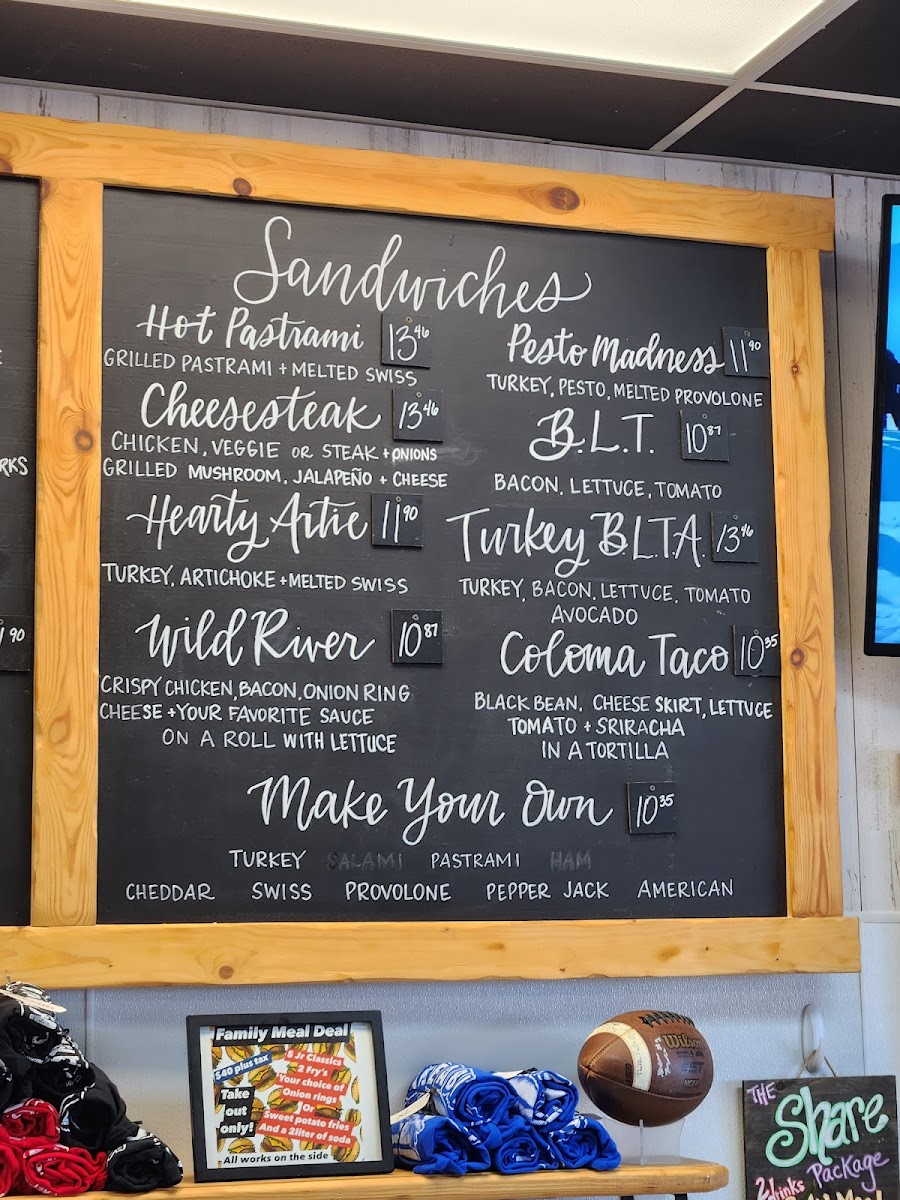 Sandwiches
Hot Pastrami 13⁴⁶
GRILLED PASTRAMI + MELTED SWISS
Cheesesteak 13⁴⁶
CHICKEN, VEGGIE OR STEAK + ONIONS
GRILLED MUSHROOM, JALAPEÑO + CHEESE
Hearty Artie 11⁹⁰
TURKEY, ARTICHOKE + MELTED SWISS
Wild River 10⁸⁷
CRISPY CHICKEN, BACON, ONION RING
CHEESE + YOUR FAVORITE SAUCE
ON A ROLL WITH LETTUCE
Pesto Madness 11⁹⁰
TURKEY, PESTO, MELTED PROVOLONE
B.L.T. 10⁸⁷
BACON, LETTUCE, TOMATO
Turkey B.L.T.A. 13⁴⁶
TURKEY, BACON, LETTUCE, TOMATO
AVOCADO
Coloma Taco 10³⁵
BLACK BEAN, CHEESE SKIRT, LETTUCE
TOMATO + SRIRACHA
IN A TORTILLA
Make Your Own 10³⁵
TURKEY SALAMI PASTRAMI HAM
CHEDDAR SWISS PROVOLONE PEPPER JACK AMERICAN
RKS
90
Family Meal Deal
$40 plus tax
Take
out
only!
5 Jr Classics
2 Fry's
Your choice of
Onion rings
Or
Sweet potato fries
And a 2liter of soda
All works on the side
Wilson
THE
Share
Package
2 drinks